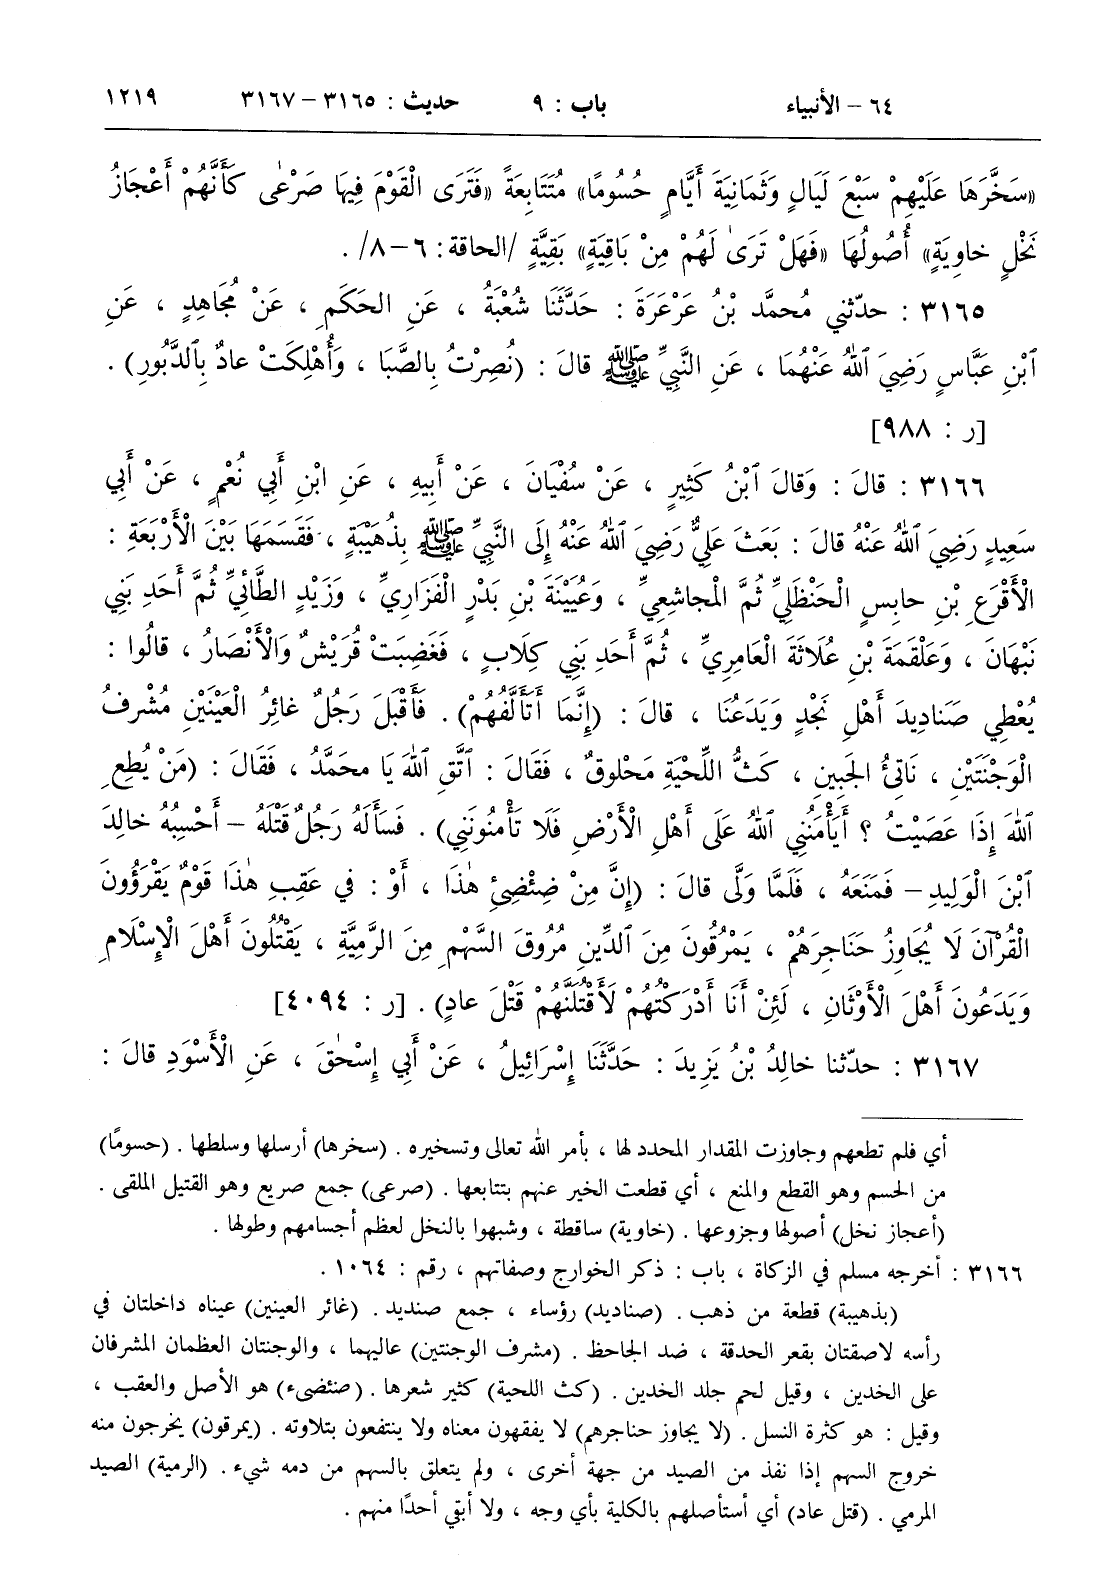 ٦٤ – الأنبياء باب : ٩ حديث : ٣١٦٥ – ٣١٦٧ ١٢١٩
«سَخَّرَهَا عَلَيْهِمْ سَبْعَ لَيَالٍ وَثَمَانِيَةَ أَيَّامٍ حُسُومًا» مُتَتَابِعَةً «فَتَرَى الْقَوْمَ فِيهَا صَرْعٰى كَأَنَّهُمْ أَعْجَازُ
نَخْلٍ خاوِيَةٍ» أُصُولُهَا «فَهَلْ تَرَىٰ لَهُمْ مِنْ بَاقِيَةٍ» بَقِيَّةٍ /الحاقة: ٦–٨/ .
٣١٦٥ : حدّثني مُحمَّد بْنُ عَرْعَرَةَ : حَدَّثَنَا شُعْبَةُ ، عَنِ الحَكَمِ ، عَنْ مُجَاهِدٍ ، عَنِ
ٱبْنِ عَبَّاسٍ رَضِيَ ٱللهُ عَنْهُمَا ، عَنِ النَّبِيِّ ﷺ قالَ : (نُصِرْتُ بِالصَّبَا ، وَأُهْلِكَتْ عادٌ بِٱلدَّبُورِ) .
[ر : ٩٨٨]
٣١٦٦ : قالَ : وَقالَ ٱبْنُ كَثِيرٍ ، عَنْ سُفْيَانَ ، عَنْ أَبِيهِ ، عَنِ ابْنِ أَبِي نُعْمٍ ، عَنْ أَبِي
سَعِيدٍ رَضِيَ ٱللهُ عَنْهُ قالَ : بَعَثَ عَلِيٌّ رَضِيَ ٱللهُ عَنْهُ إِلَى النَّبِيِّ ﷺ بِذُهَيْبَةٍ ، فَقَسَمَهَا بَيْنَ الْأَرْبَعَةِ :
الْأَقْرَعِ بْنِ حابِسٍ الْحَنْظَلِيِّ ثُمَّ الْمجاشِعِيِّ ، وَعُيَيْنَةَ بْنِ بَدْرٍ الْفَزَارِيِّ ، وَزَيْدٍ الطَّائِيِّ ثُمَّ أَحَدِ بَنِي
نَبْهَانَ ، وَعَلْقَمَةَ بْنِ عُلَاثَةَ الْعَامِرِيِّ ، ثُمَّ أَحَدِ بَنِي كِلَابٍ ، فَغَضِبَتْ قُرَيْشٌ وَالْأَنْصَارُ ، قالُوا :
يُعْطِي صَنَادِيدَ أَهْلِ نَجْدٍ وَيَدَعُنَا ، قالَ : (إِنَّمَا أَتَأَلَّفُهُمْ) . فَأَقْبَلَ رَجُلٌ غائِرُ الْعَيْنَيْنِ مُشْرِفُ
الْوَجْنَتَيْنِ ، نَاتِئُ الجَبِينِ ، كَثُّ اللِّحْيَةِ مَحْلوقٌ ، فَقَالَ : ٱتَّقِ ٱللهَ يَا محَمَّدُ ، فَقَالَ : (مَنْ يُطِعِ
ٱللهَ إِذَا عَصَيْتُ ؟ أَيَأْمَنُنِي ٱللهُ عَلَى أَهْلِ الْأَرْضِ فَلَا تَأْمَنُونَنِي) . فَسَأَلَهُ رَجُلٌ قَتْلَهُ – أَحْسِبُهُ خالِدَ
ٱبْنَ الْوَلِيدِ – فَمَنَعَهُ ، فَلَمَّا وَلَّى قالَ : (إِنَّ مِنْ ضِئْضِئِ هٰذَا ، أَوْ : في عَقِبِ هٰذَا قَوْمٌ يَقْرَؤُونَ
الْقُرْآنَ لَا يُجَاوِزُ حَنَاجِرَهُمْ ، يَمْرُقُونَ مِنَ ٱلدِّينِ مُرُوقَ السَّهْمِ مِنَ الرَّمِيَّةِ ، يَقْتُلُونَ أَهْلَ الْإِسْلَامِ
وَيَدَعُونَ أَهْلَ الْأَوْثَانِ ، لَئِنْ أَنَا أَدْرَكْتُهُمْ لَأَقْتُلَنَّهُمْ قَتْلَ عادٍ) . [ر : ٤٠٩٤]
٣١٦٧ : حدّثنا خالِدُ بْنُ يَزِيدَ : حَدَّثَنَا إِسْرَائِيلُ ، عَنْ أَبِي إِسْحٰقَ ، عَنِ الْأَسْوَدِ قالَ :
أي فلم تطعهم وجاوزت المقدار المحدد لها ، بأمر الله تعالى وتسخيره . (سخرها) أرسلها وسلطها . (حسومًا)
من الحسم وهو القطع والمنع ، أي قطعت الخير عنهم بتتابعها . (صرعى) جمع صريع وهو القتيل الملقى .
(أعجاز نخل) أصولها وجزوعها . (خاوية) ساقطة ، وشبهوا بالنخل لعظم أجسامهم وطولها .
٣١٦٦ : أخرجه مسلم في الزكاة ، باب : ذكر الخوارج وصفاتهم ، رقم : ١٠٦٤ .
(بذهيبة) قطعة من ذهب . (صناديد) رؤساء ، جمع صنديد . (غائر العينين) عيناه داخلتان في
رأسه لاصقتان بقعر الحدقة ، ضد الجاحظ . (مشرف الوجنتين) عاليهما ، والوجنتان العظمان المشرفان
على الخدين ، وقيل لحم جلد الخدين . (كث اللحية) كثير شعرها . (ضئضىء) هو الأصل والعقب ،
وقيل : هو كثرة النسل . (لا يجاوز حناجرهم) لا يفقهون معناه ولا ينتفعون بتلاوته . (يمرقون) يخرجون منه
خروج السهم إذا نفذ من الصيد من جهة أخرى ، ولم يتعلق بالسهم من دمه شيء . (الرمية) الصيد
المرمي . (قتل عاد) أي أستأصلهم بالكلية بأي وجه ، ولا أبقي أحدًا منهم .